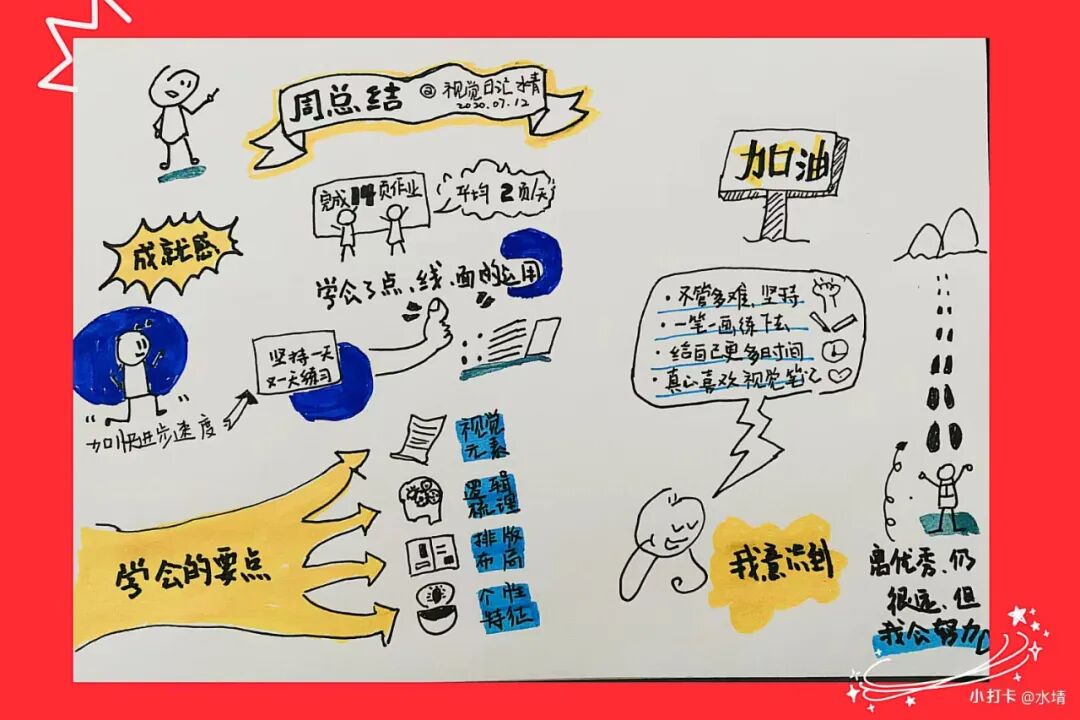 周总结
@视觉日汇 水精
2020.07.12
完成14页作业
平均2页/天
成就感
学会了点、线、面的运用
坚持一天
又一天练习
加快进步速度
学会的要点
视觉
元素
逻辑
梳理
排版
布局
个性
特征
加油
·不管多难、坚持
·一笔一画练下去
·给自己更多时间
·真心喜欢视觉笔记
我意识到
离优秀、仍
很远、但
我会努力
小打卡 @水埥